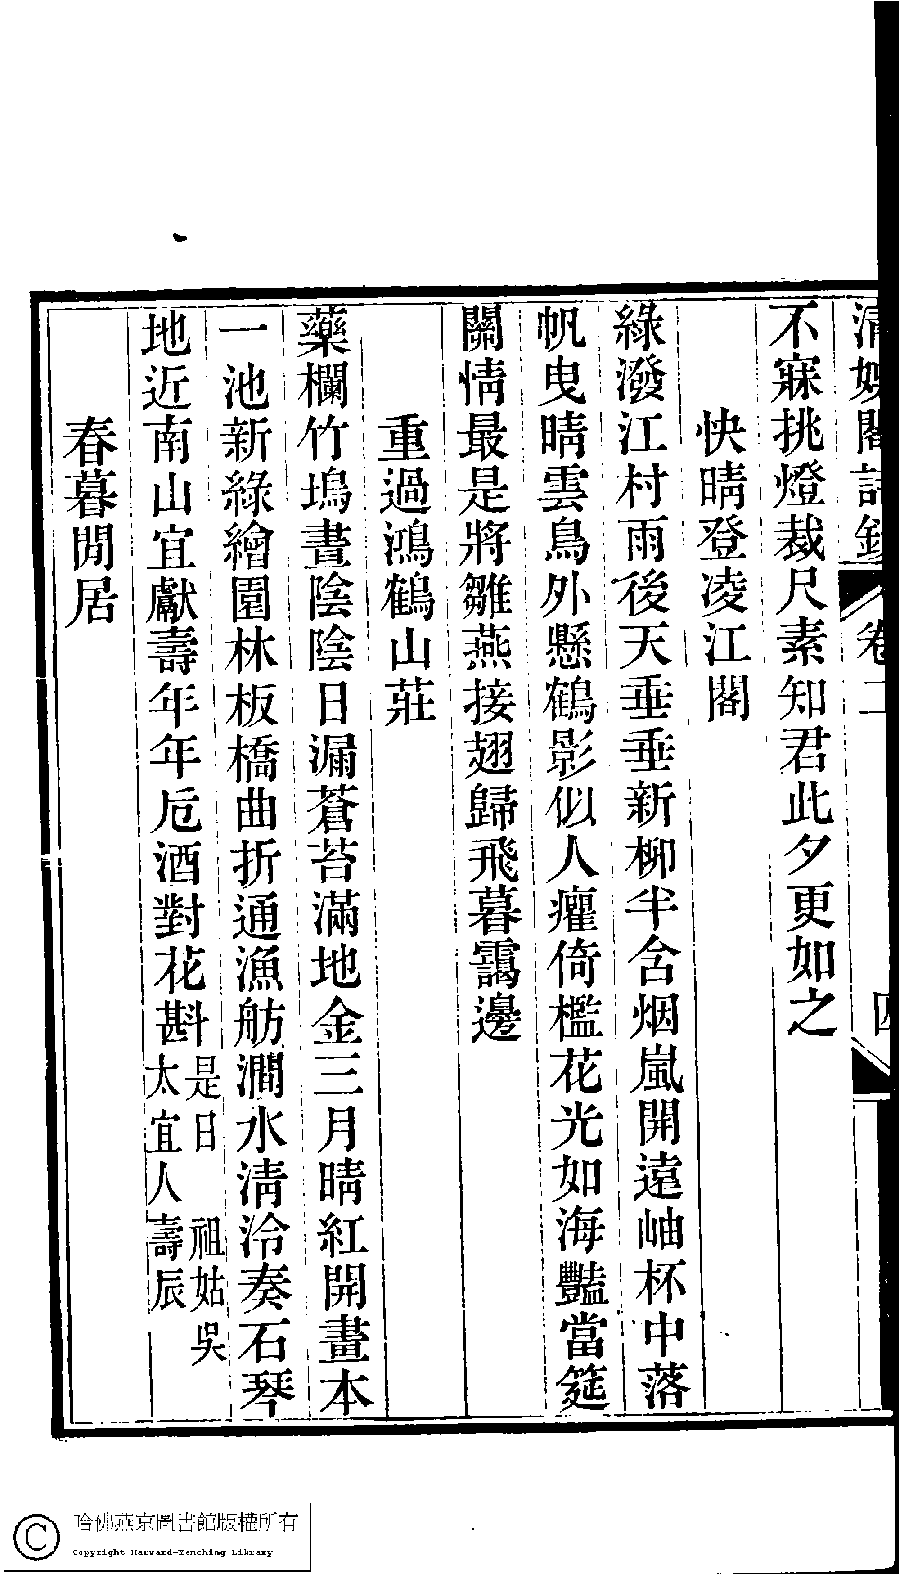 清娛閣詩鈔 卷二 四
不寐挑燈裁尺素知君此夕更如之
快晴登凌江閣
綠潑江村雨後天垂垂新柳半含烟嵐開遠岫杯中落
帆曳晴雲鳥外懸鶴影似人癯倚檻花光如海豔當筵
關情最是將雛燕接翅歸飛暮靄邊
重過鴻鶴山莊
藥欄竹塢晝陰陰日漏蒼苔滿地金三月晴紅開畫本
一池新綠繪園林板橋曲折通漁舫澗水清泠奏石琴
地近南山宜獻壽年年卮酒對花斟
是日 祖姑吳
太宜人壽辰
春暮閒居
哈佛燕京圖書館版權所有
Copyright Harvard-Yenching Library